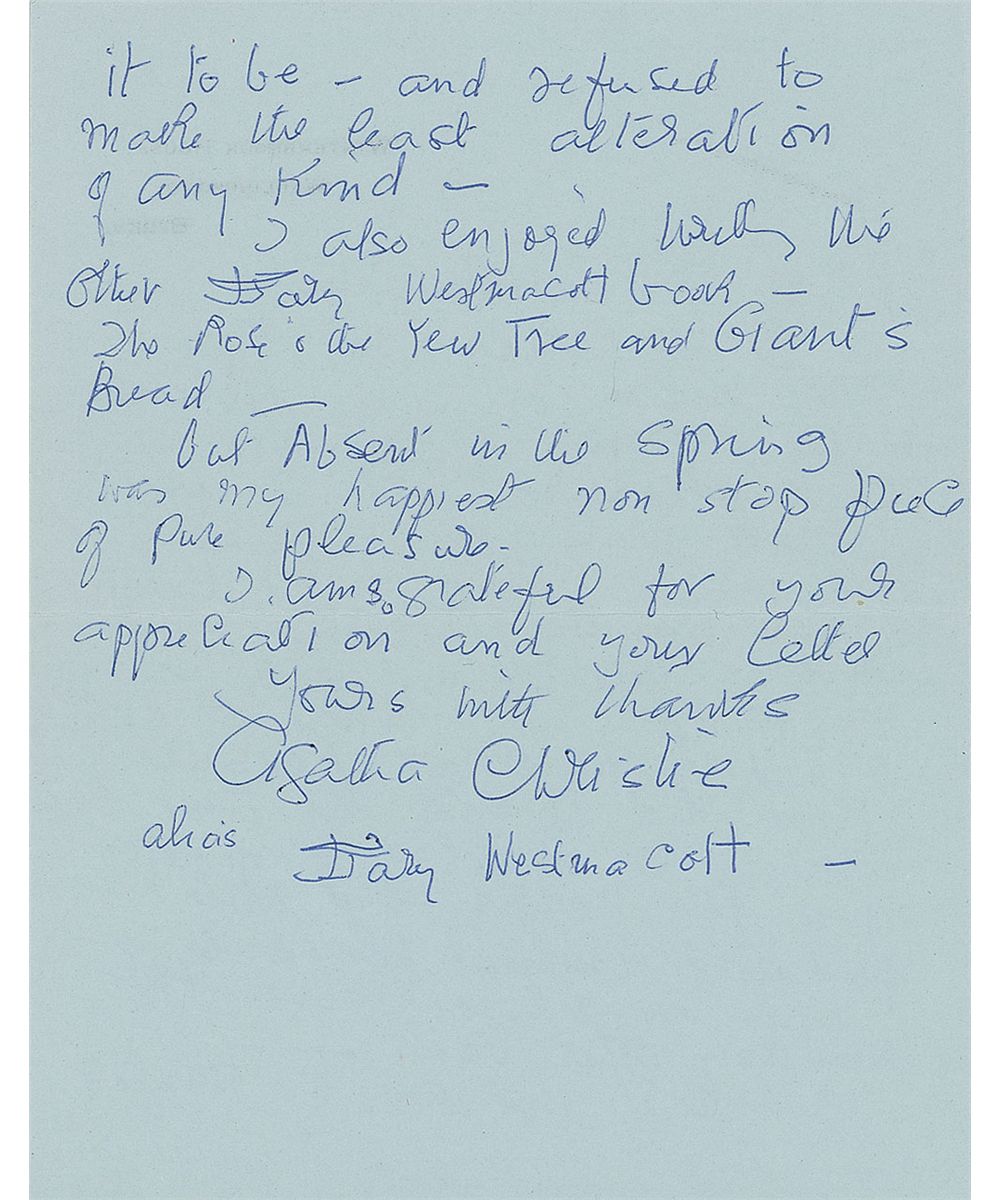 it to be – and refused to
make the least alteration
of any kind –
I also enjoyed writing the
other Mary Westmacott book –
The Rose & the Yew Tree and Giant's
Bread —
but Absent in the Spring
was my happiest non stop piece
of pure pleasure.
I am so grateful for your
appreciation and your letter
Yours with thanks
Agatha Christie
alias
Mary Westmacott –